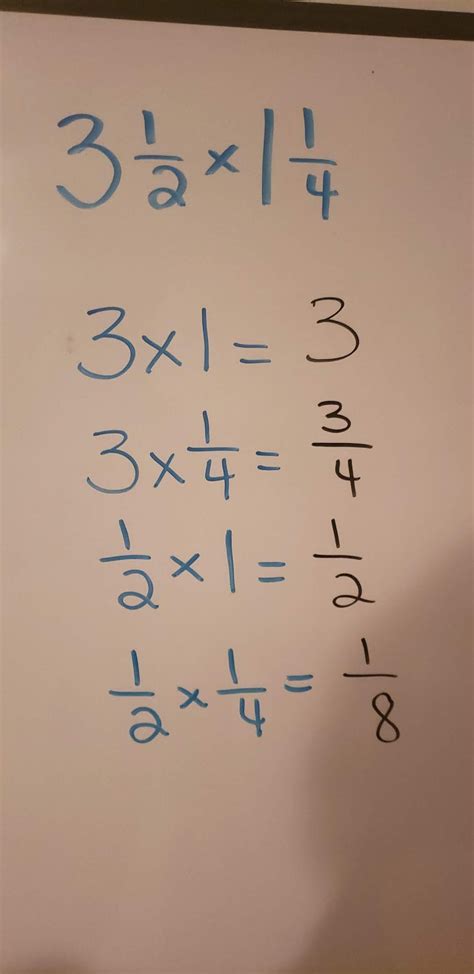 3 1/2 × 1 1/4
3 × 1 = 3
3 × 1/4 = 3/4
1/2 × 1 = 1/2
1/2 × 1/4 = 1/8